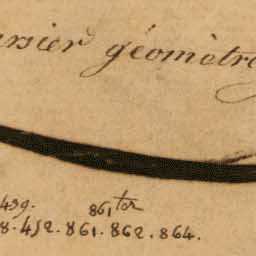 ursier géomètre
439.
861 ter
8. 452. 861. 862. 864.